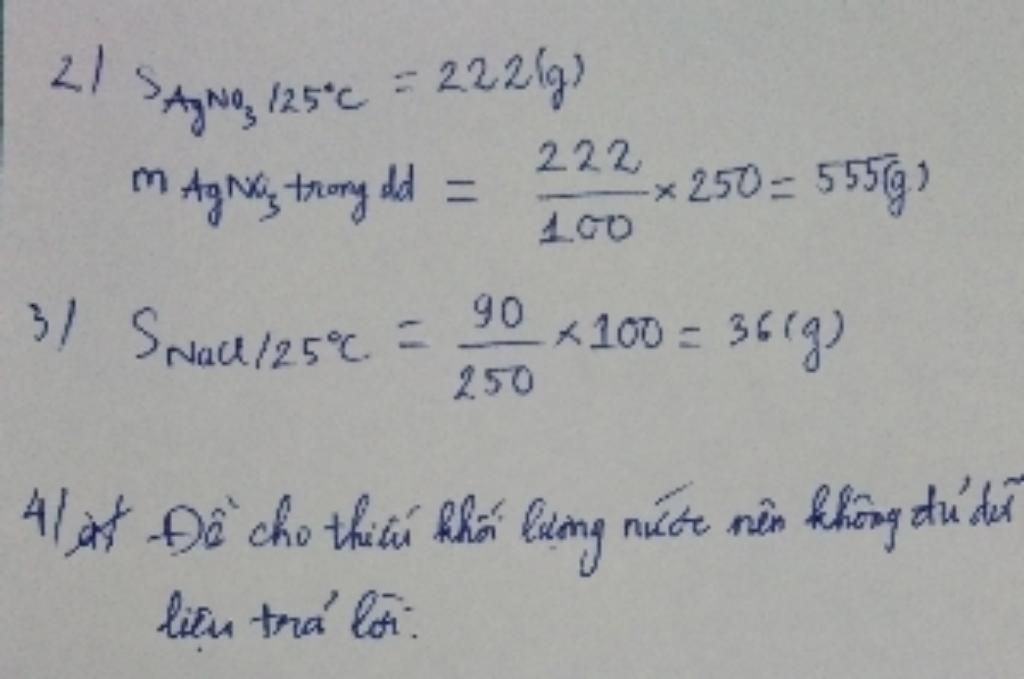 2/ S AgNO₃ /25°C = 222(g)
m AgNO₃ trong dd = 222/100 × 250 = 555(g)
3/ S NaCl/25°C = 90/250 × 100 = 36(g)
4/ Đề cho thiếu khối lượng nước nên không đủ dữ
liệu trả lời.